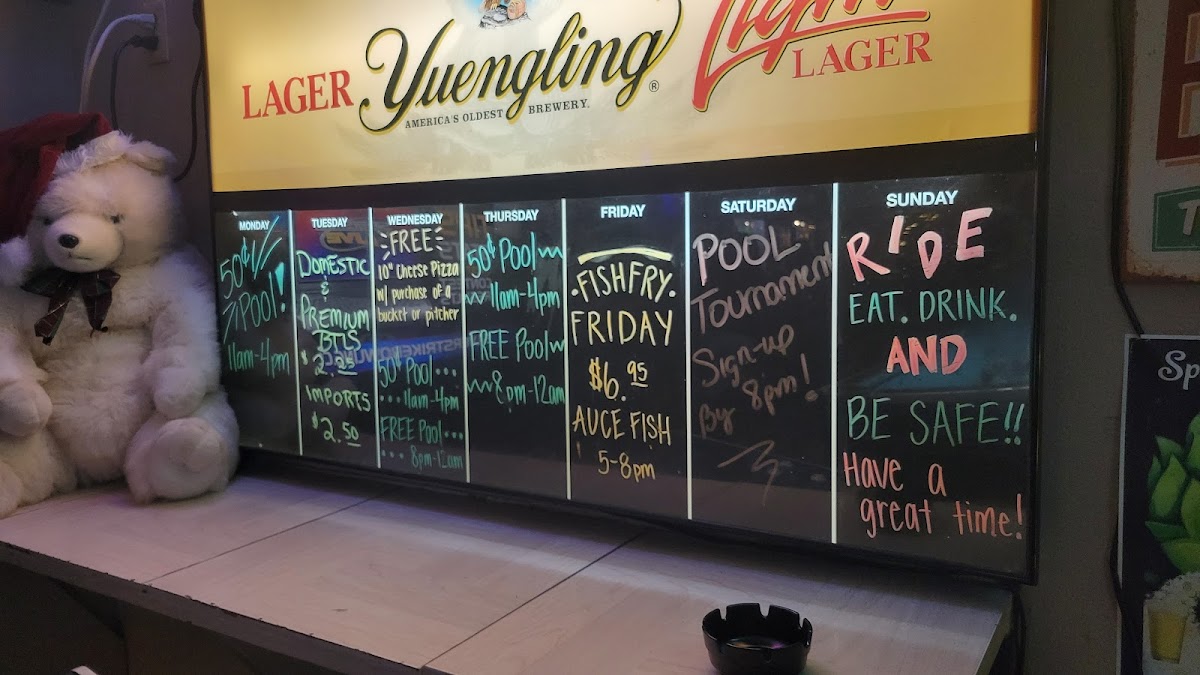 LAGER Yuengling Light LAGER
AMERICA'S OLDEST BREWERY.
MONDAY
50¢
POOL!
11am-4pm
TUESDAY
DOMESTIC
&
PREMIUM
BTLS
$2.25
IMPORTS
$2.50
WEDNESDAY
FREE
10" Cheese Pizza
w/ purchase of a
bucket or pitcher
50¢ Pool...
...11am-4pm
FREE Pool...
... 8pm-12am
THURSDAY
50¢ Pool
11am-4pm
FREE Pool
8pm-12am
FRIDAY
·FISHFRY·
FRIDAY
$6.95
AUCE FISH
5-8pm
SATURDAY
POOL
Tournament
Sign-up
By 8pm!
SUNDAY
RIDE
EAT. DRINK.
AND
BE SAFE!!
Have a
great time!
Sp